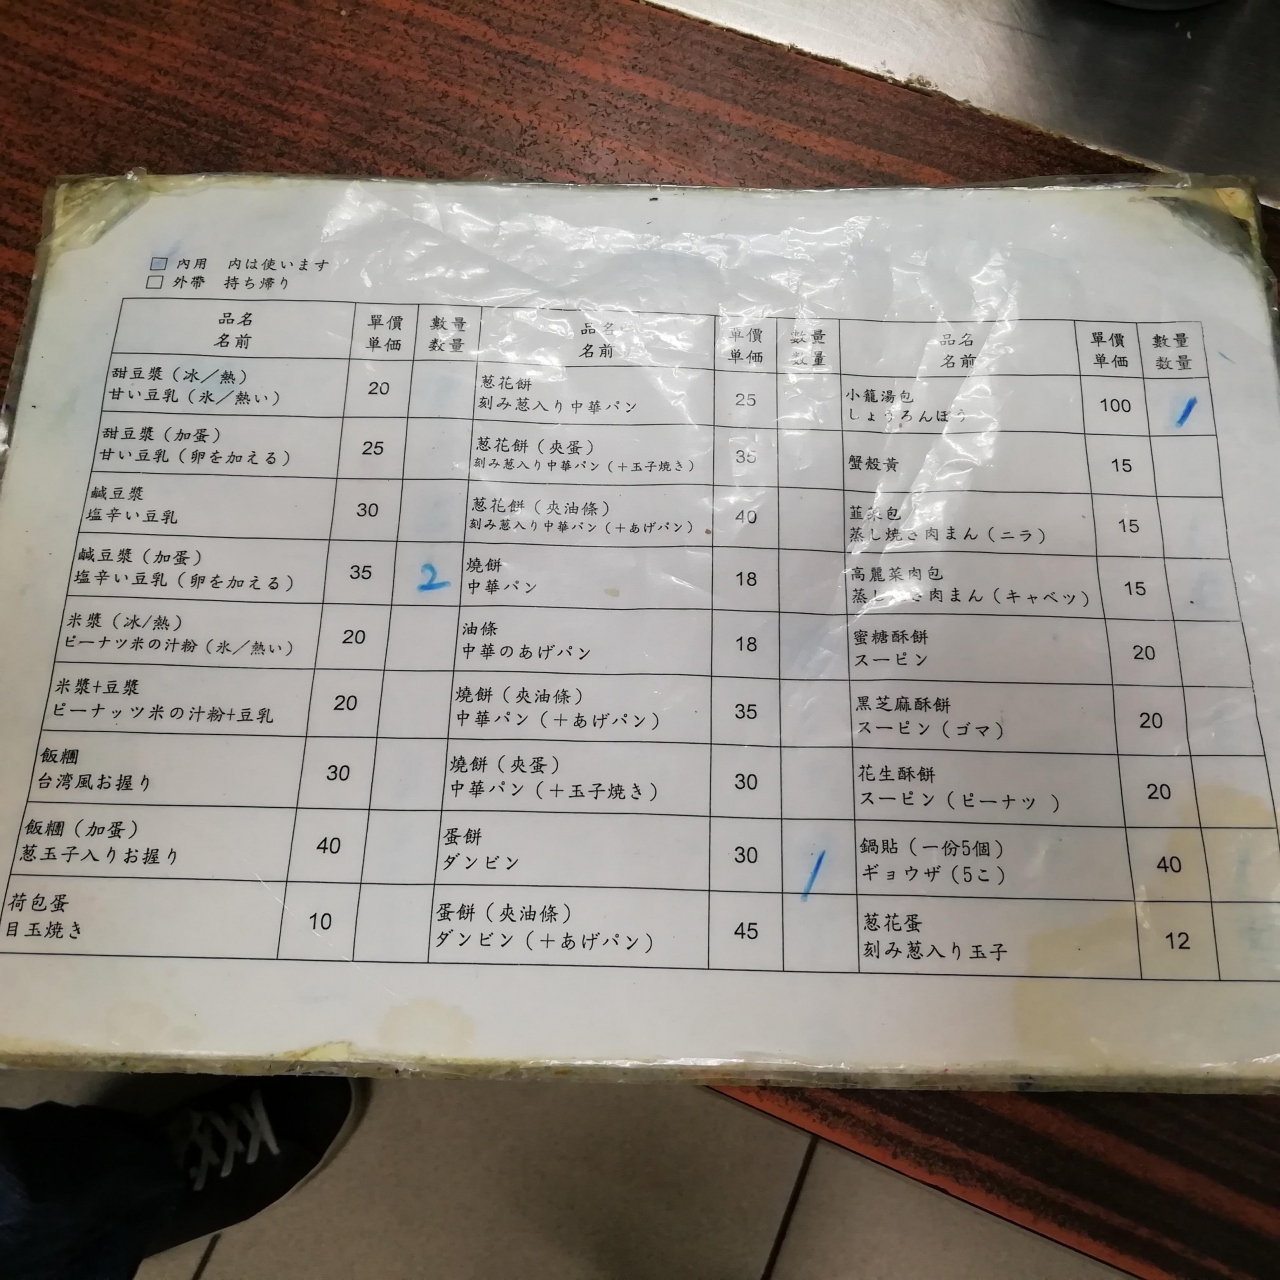 內用 内は使います
外帶 持ち帰り
品名 單價 數量 品名 單價 數量 品名 單價 數量
名前 単価 数量 名前 単価 数量 名前 単価 数量
甜豆漿（冰／熱） 20 葱花餅 25 小籠湯包 100 1
甘い豆乳（氷／熱い） 刻み葱入り中華パン しょうろんぽう
甜豆漿（加蛋） 25 葱花餅（夾蛋） 35 蟹殼黃 15
甘い豆乳（卵を加える） 刻み葱入り中華パン（＋玉子焼き）
鹹豆漿 30 葱花餅（夾油條） 40 韮菜包 15
塩辛い豆乳 刻み葱入り中華パン（＋あげパン） 蒸し焼き肉まん（ニラ）
鹹豆漿（加蛋） 35 2 燒餅 18 高麗菜肉包 15
塩辛い豆乳（卵を加える） 中華パン 蒸し焼き肉まん（キャベツ）
米漿（冰/熱） 20 油條 18 蜜糖酥餅 20
ピーナツ米の汁粉（氷／熱い） 中華のあげパン スーピン
米漿+豆漿 20 燒餅（夾油條） 35 黑芝麻酥餅 20
ピーナッツ米の汁粉+豆乳 中華パン（＋あげパン） スーピン（ゴマ）
飯糰 30 燒餅（夾蛋） 30 花生酥餅 20
台湾風お握り 中華パン（＋玉子焼き） スーピン（ピーナツ ）
飯糰（加蛋） 40 蛋餅 30 1 鍋貼（一份5個） 40
葱玉子入りお握り ダンビン ギョウザ（5こ）
荷包蛋 10 蛋餅（夾油條） 45 葱花蛋 12
目玉焼き ダンビン（＋あげパン） 刻み葱入り玉子